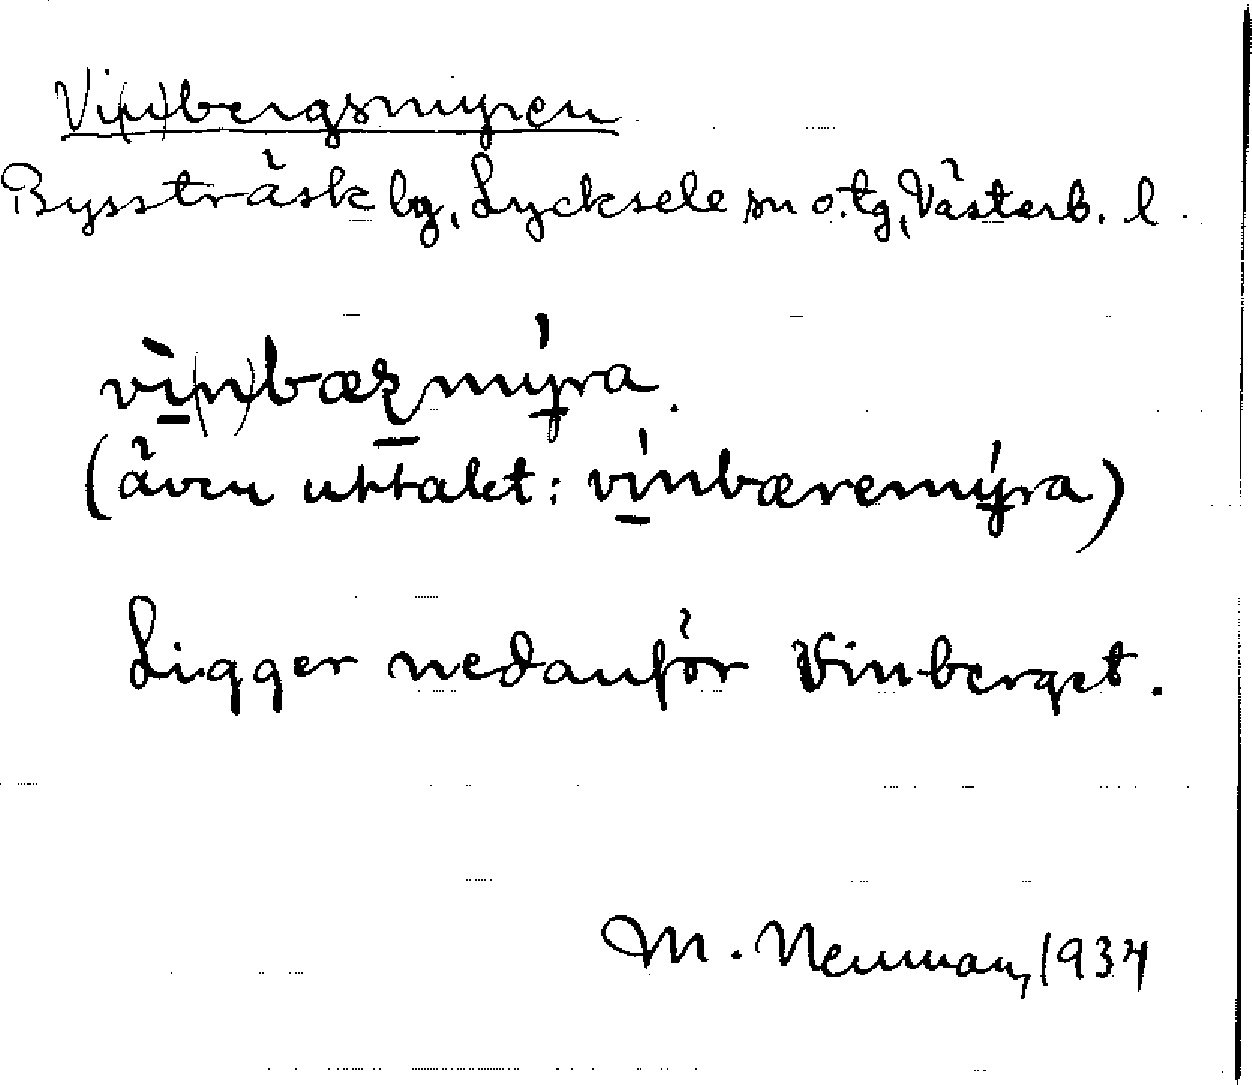 Vi(n)bergsmyren
Byssträsk by, Lycksele sn o. tg, Västerb. l.
vì(n)bæʂmýra.
(även uttalet: vínbæremýra)
Ligger nedanför Vinberget.
M. Neuman, 1934